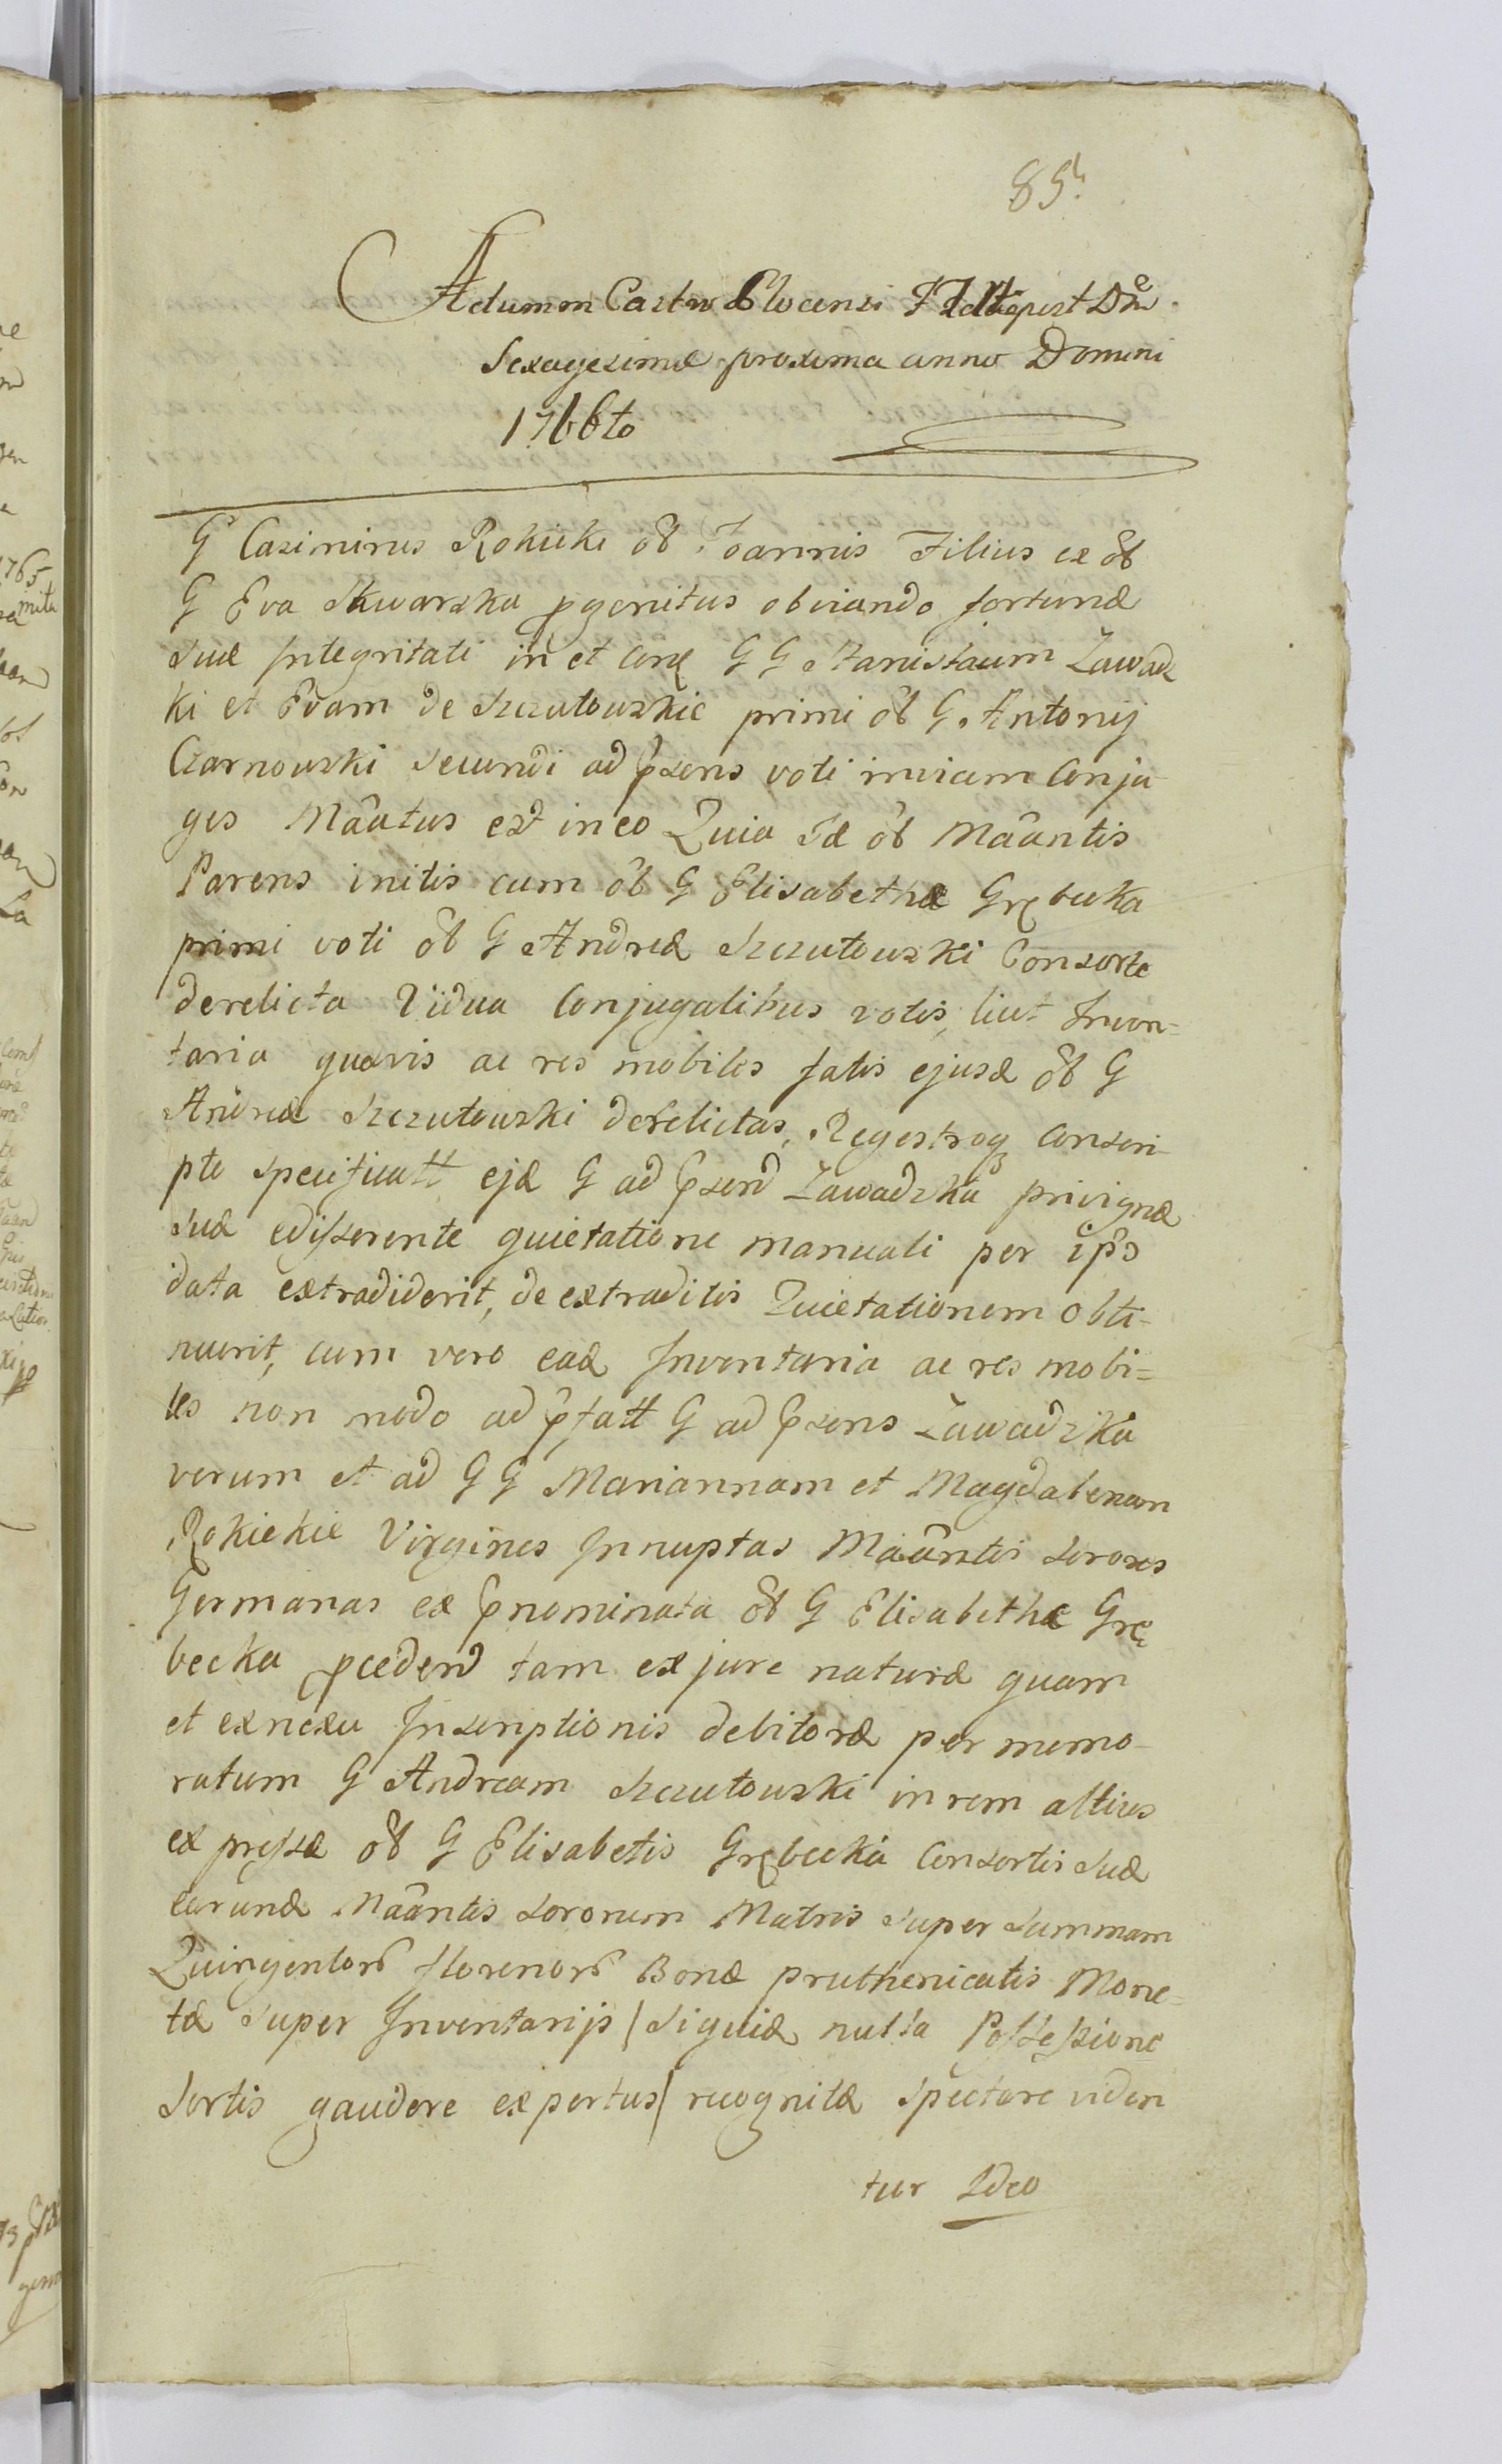 85
Actum in Castro Plocensi post Dnẽ
Sexagesimæ proxima anno Domini
1766to
G Casimirus Rokicki ol Joannis Filius ex ol
G Eva Skwarska pgenitus obviando fortunæ
suæ Integritati in et conq GG Stanislaum Zawadz
ki et Evam de Szczutowskie primi ol G Antonij
Czarnowski secundi ad pñsens voti invicem Conju
ges Mãatus est in eo Quia Idẽ ol Mãantis
Parens initis cum ol G Elisabetha Grębecka
primi voti ol G Andreæ Szczutowski Consorte
derelicta Vidua Conjugalibus votis, licet Inven=
taria quævis ac res mobiles fatis ejusd ol G
Andreæ Szczutowski derelictas, Regestroq conscri
pto specificatt ejd G ad pñsend Zawadzka privignæ
suæ edisserente quietatione manuali per ips
data extradiderit, de extraditis Quietationem obti=
nuerit, cum vero ead Inventaria ac res mobi=
les non modo ad pfatt G ad pñsens Zawadzka
verum et ad GG Mariannam et Magdalenam
Rokickie Virgines Innuptas Mãantis sorores
Germanas ex pnominata ol G Elisabetha Grę
becka pcedend tam ex jure naturæ quam
et ex nexu Inscriptionis debitoræ per memo=
ratum G Andream Szczutowski in rem altius
expressæ ol G Elisabetis Grębecka Consortis suæ
earund Mãantis sororum Matris super summam
Quingentor florenor Bonæ pruthenicatis Mone=
tæ super Inventarijs / siquid nulla Possessione
sortis gaudere expertus / recognitæ spectare viden
tur Ideo